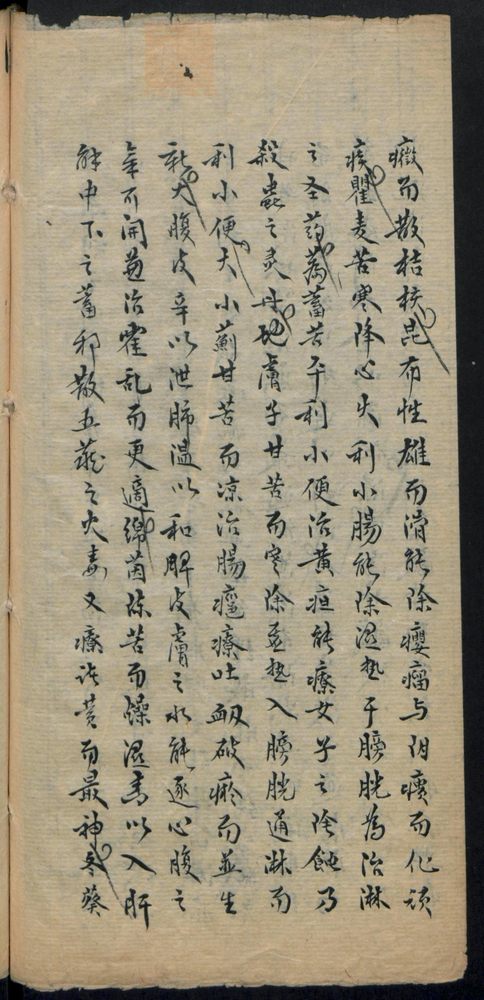 癥而散桔核昆布性雄而滑能除癭瘤与阴㿉而化顽
痰瞿麦苦寒降心火利小腸能除湿热于膀胱為治淋
之圣药萹蓄苦平利小便治黄疸能療女子之陰蝕乃
殺蟲之灵丹地膚子甘苦而寒除虚热入膀胱通淋而
利小便大小薊甘苦而凉治腸癰療吐衂破瘀而並生
新大腹皮辛以泄肺温以和脾皮膚之水能逐心腹之
氣可開兼治霍乱而更適綿茵陈苦而燥湿香以入肝
能申下之蓄邪散五蔵之火毒又療诸黄而最神冬葵